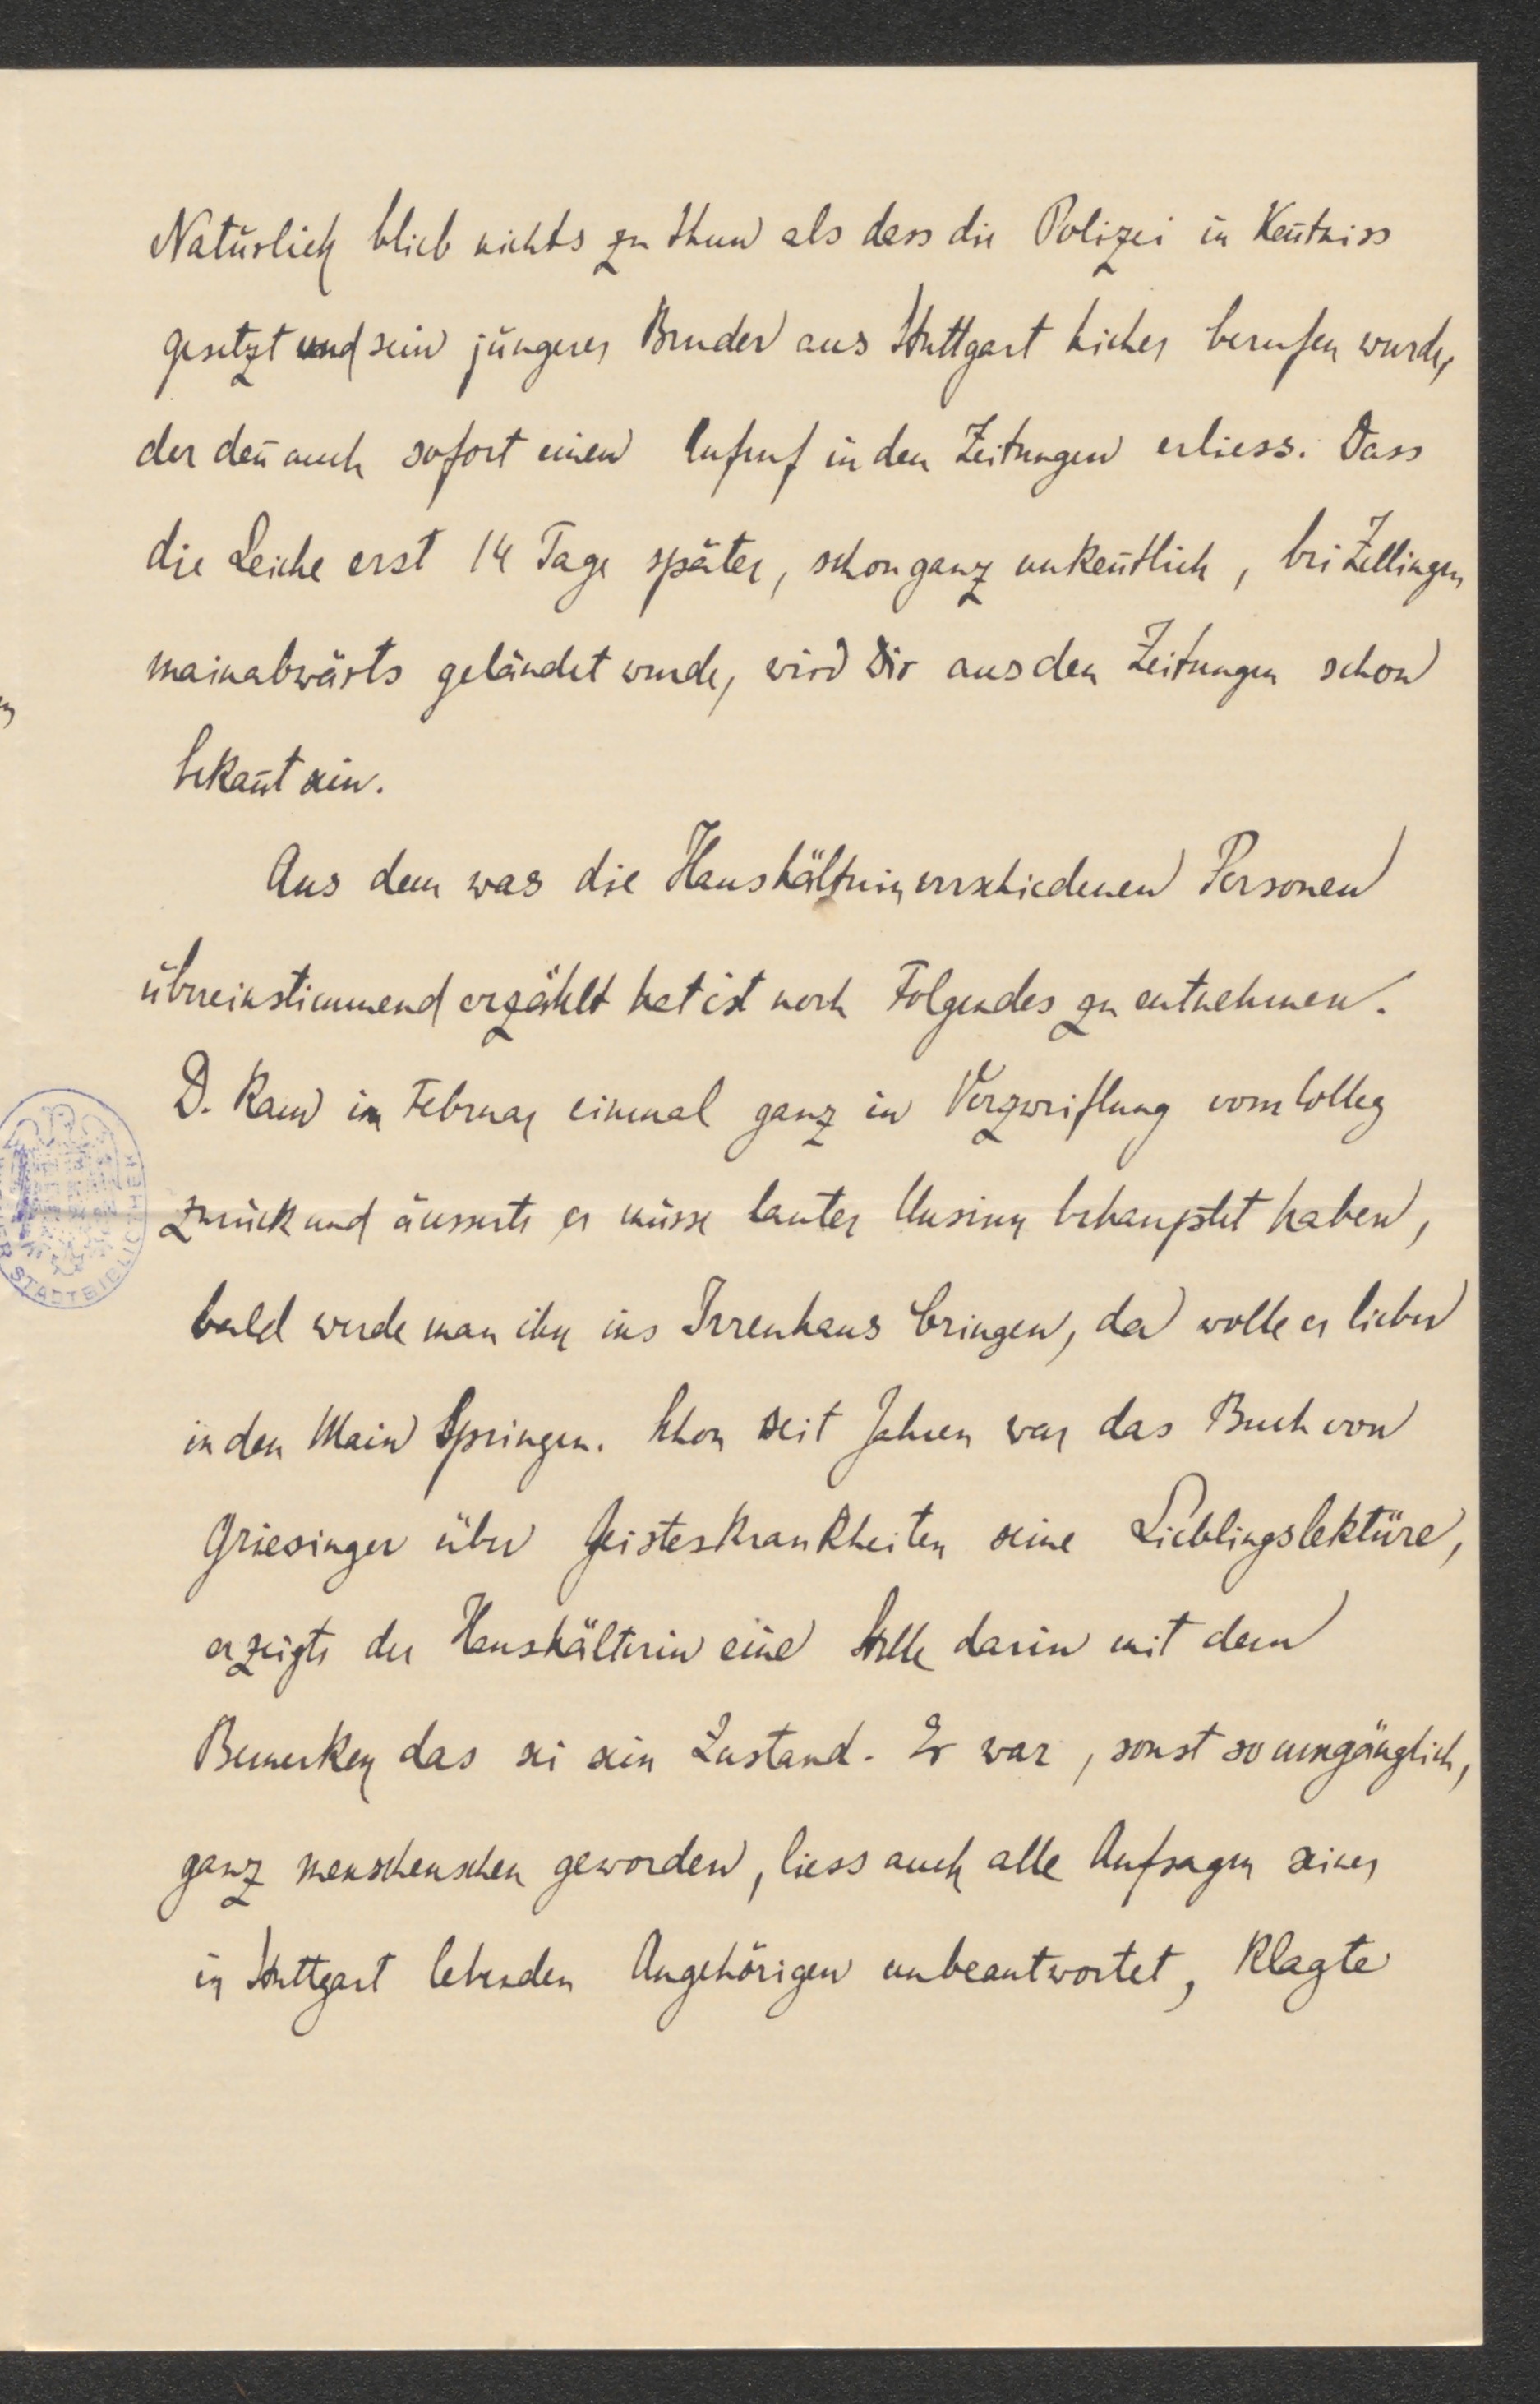 Natürlich blieb nichts zu thun als dass die Polizei in Keñtniss
gesetzt und sein jüngerer Bruder aus Stuttgart hieher berufen wurde,
der deñ auch sofort einen Aufruf in den Zeitungen erliess. Dass
die Leiche erst 14 Tage später, schon ganz unkeñtlich, bei Zellingen
mainabwärts geländet wurde, wird Dir aus den Zeitungen schon
bekañt sein.
Aus dem was die Haushälterin verschiedenen Personen
übereinstimmend erzählt hat ist noch Folgendes zu entnehmen.
D. kam im Februar einmal ganz in Verzweiflung vom Colleg
zurück und äusserte er müsse lauter Unsinn behauptet haben,
bald werde man ihn ins Irrenhaus bringen, da wolle er lieber
in den Main springen. Schon seit Jahren war das Buch von
Griesinger über Geisteskrankheiten seine Lieblingslektüre,
er zeigte der Haushälterin eine Stelle darin mit dem
Bemerken das sei sein Zustand. Er war, sonst so umgänglich,
ganz menschenscheu geworden, liess auch alle Anfragen seiner
in Stuttgart lebenden Angehörigen unbeantwortet, klagte
STADTBIBLIOTHEK